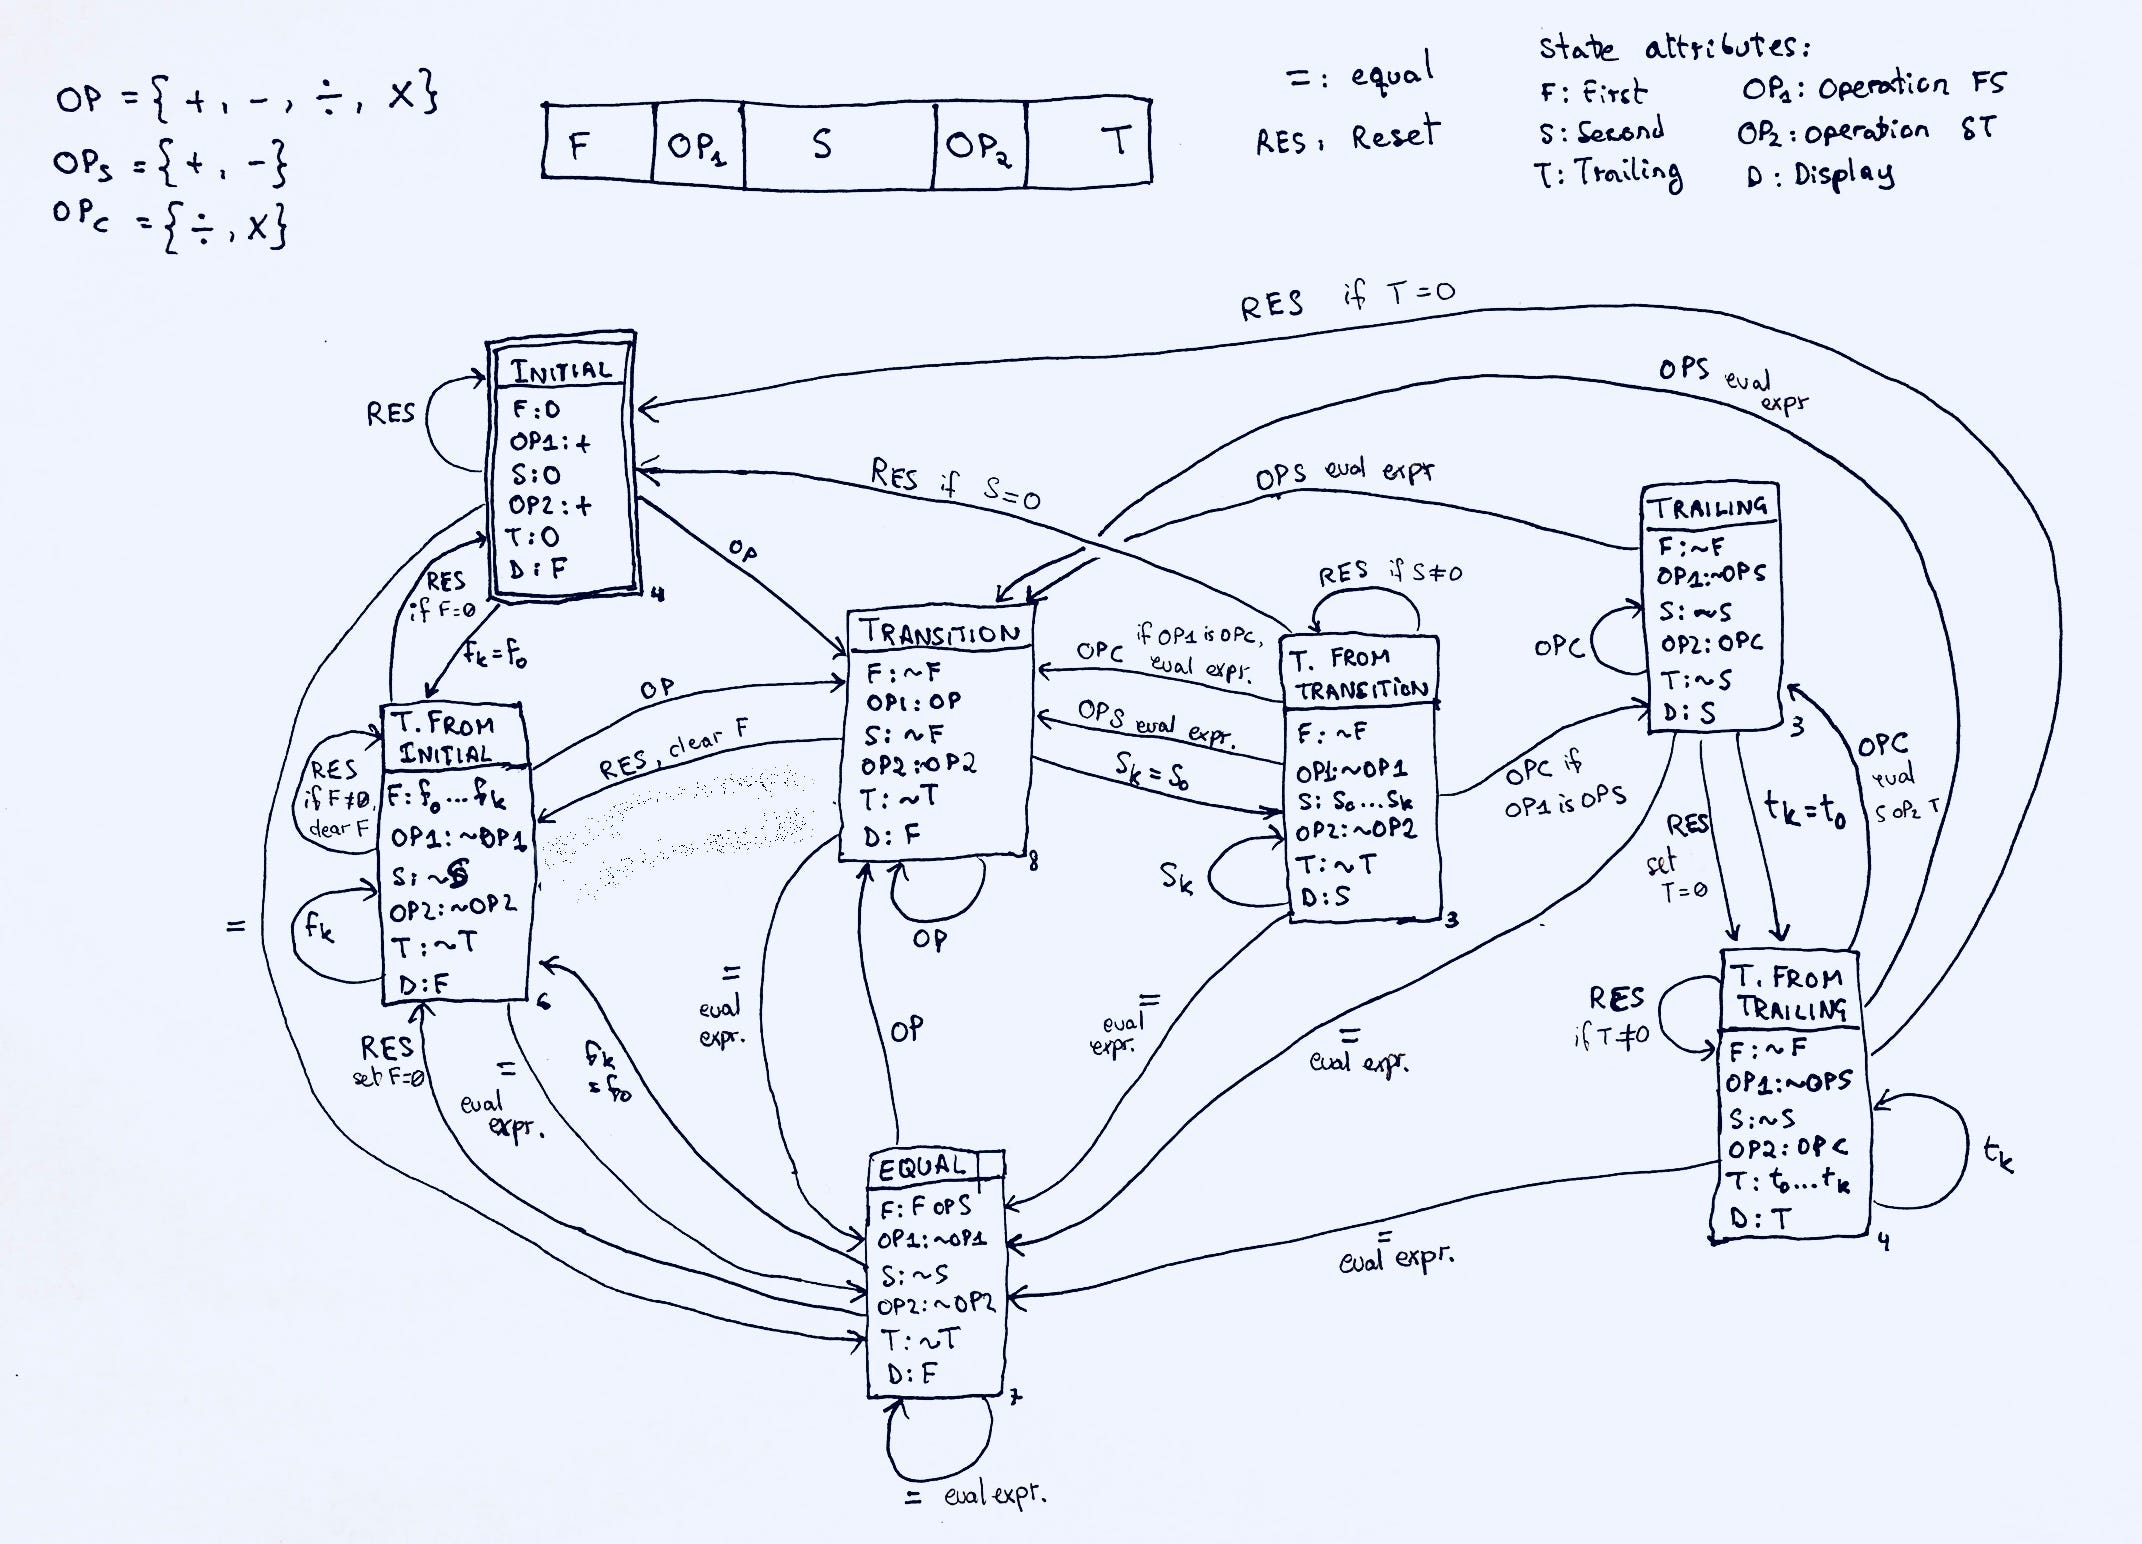 OP = { +, -, ÷, X}
OPs = { +, -}
OPc = { ÷, X}
F OP₁ S OP₂ T
=: equal
RES: Reset
State attributes:
F: First OP₁: Operation FS
S: Second OP₂: Operation ST
T: Trailing D: Display
RES if T=0
INITIAL
F:0
OP1:+
S:0
OP2:+
T:0
D:F
4
RES
OPS eval
expr
RES if S=0
OPS eval expr
OP
RES
if F=0
fk=f0
TRAILING
F:~F
OP1:~OPS
S:~S
OP2:OPC
T:~S
D:S
3
OPC
RES if S≠0
TRANSITION
F:~F
OP1:OP
S:~F
OP2:OP2
T:~T
D:F
8
OPC if OP1 is OPC,
eval expr.
OPS eval expr.
Sk=S0
T. FROM
TRANSITION
F:~F
OP1:~OP1
S: S0...Sk
OP2:~OP2
T:~T
D:S
3
Sk
OPC if
OP1 is OPS
OP
RES, clear F
T. FROM
INITIAL
F: f0...fk
OP1:~OP1
S:~S
OP2:~OP2
T:~T
D:F
6
RES
if F≠0,
clear F
fk
RES
set
T=0
tk=t0
OPC
eval
S OP2 T
=
OP
=
eval
expr.
OP
=
eval
expr.
=
eval expr.
RES
if T≠0
T. FROM
TRAILING
F:~F
OP1:~OPS
S:~S
OP2:OPC
T: t0...tk
D:T
4
tk
RES
set F=0
=
eval
expr.
fk
=f0
EQUAL
F: F OPS
OP1:~OP1
S:~S
OP2:~OP2
T:~T
D:F
7
=
eval expr.
= eval expr.